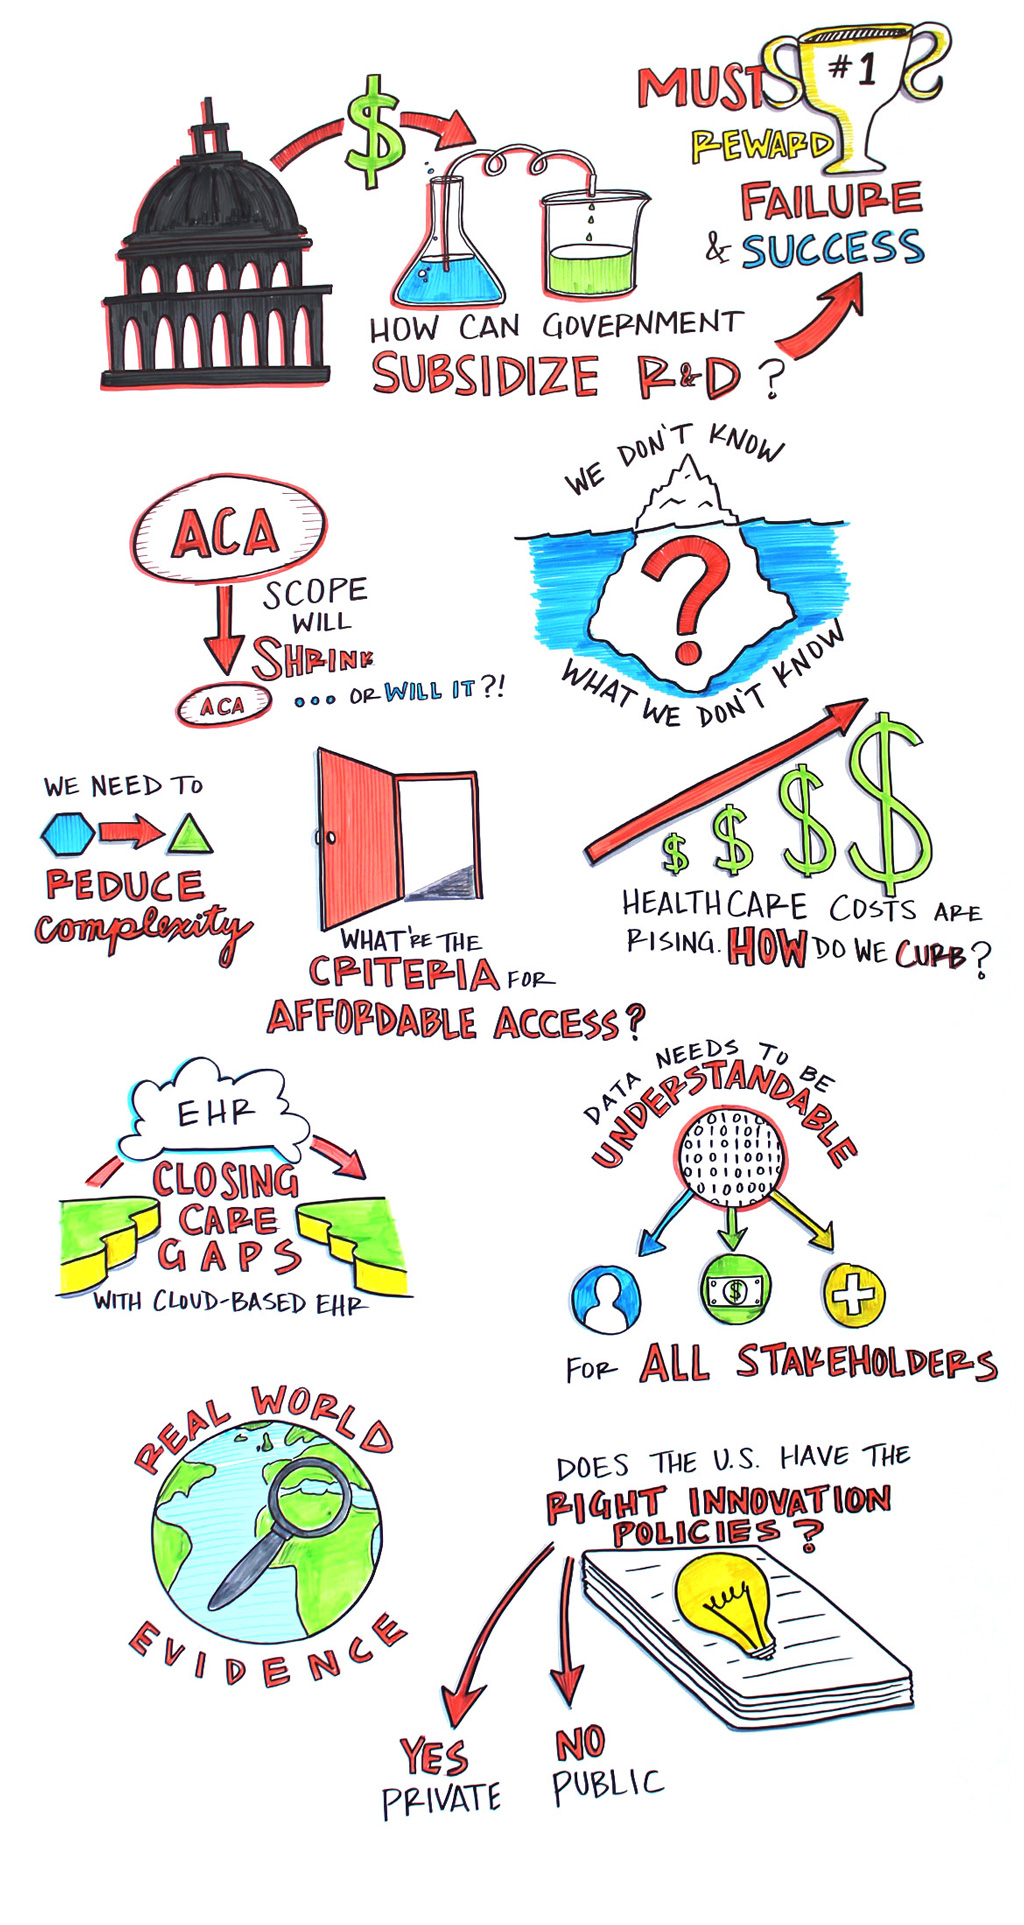 MUST
#1
REWARD
FAILURE
& SUCCESS
$
HOW CAN GOVERNMENT
SUBSIDIZE R&D?
ACA
SCOPE
WILL
SHRINK
ACA
... OR WILL IT?!
WE DON'T KNOW
?
WHAT WE DON'T KNOW
WE NEED TO
REDUCE
complexity
WHAT'RE THE
CRITERIA FOR
AFFORDABLE ACCESS?
$ $ $ $
HEALTHCARE COSTS ARE
RISING. HOW DO WE CURB?
EHR
CLOSING
CARE
GAPS
WITH CLOUD-BASED EHR
DATA NEEDS TO BE
UNDERSTANDABLE
$
FOR ALL STAKEHOLDERS
REAL WORLD
EVIDENCE
DOES THE U.S. HAVE THE
RIGHT INNOVATION
POLICIES?
YES
PRIVATE
NO
PUBLIC